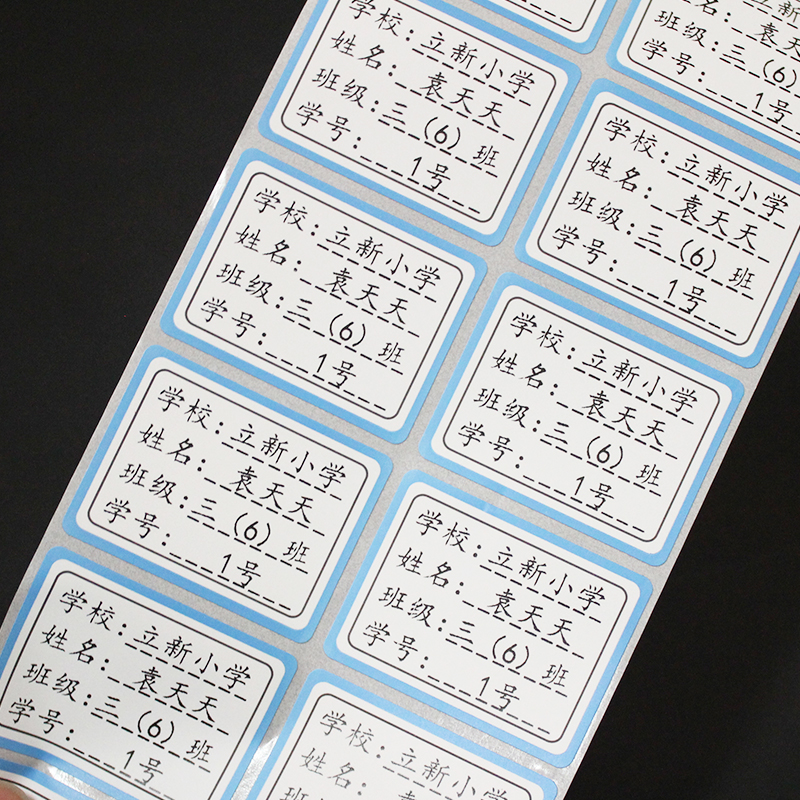 学校:立新小学
姓名:袁天天
班级:三(6)班
学号:1号
姓名:袁天
班级:三(6)
学号:1号
学校:立新小学
姓名:袁天天
班级:三(6)班
学号:1号
学校:立新小学
姓名:袁天天
班级:三(6)班
学号:1号
学校:立新小学
姓名:袁天天
班级:三(6)班
学号:1号
学校:立新小学
姓名:袁天天
班级:三(6)班
学号:1号
学校:立新小学
姓名:袁天天
班级:三(6)班
学号:1号
学校:立新小学
姓名:袁天天
班级:三(6)班
学号:1号
学校:立新小学
姓名: